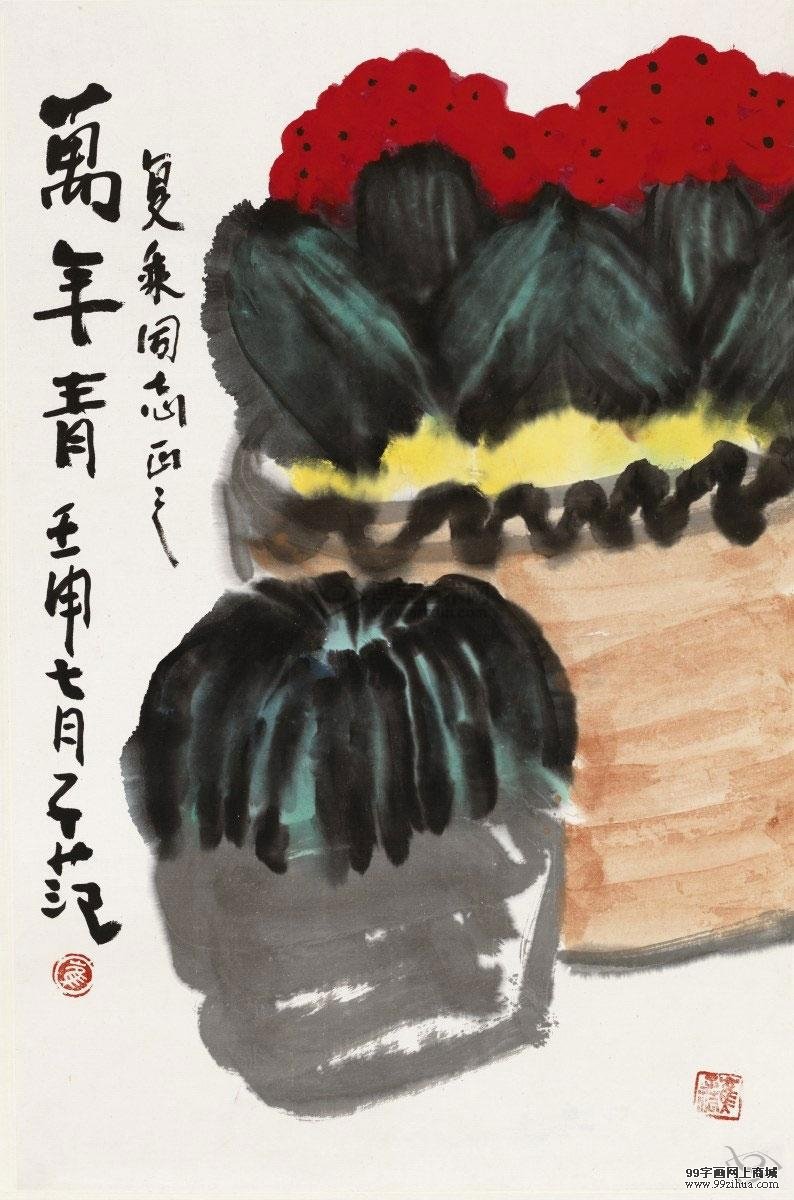 萬年青
壬申七月子范
复乘同志正之
99字画网上商城
www.99zihua.com